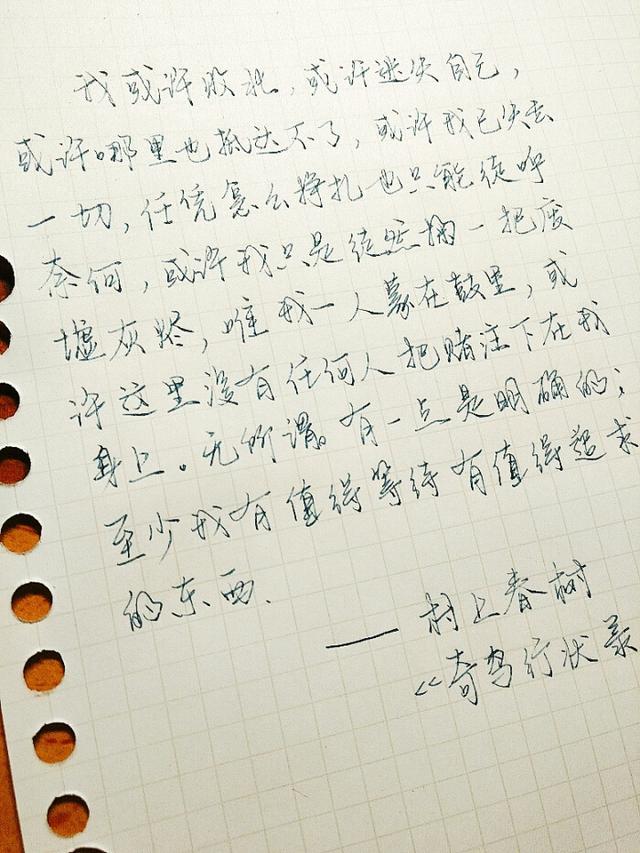 我或许败北,或许迷失自己,
或许哪里也抵达不了,或许我已失去
一切,任凭怎么挣扎也只能徒呼
奈何,或许我只是徒然掬一把废
墟灰烬,唯我一人蒙在鼓里,或
许这里没有任何人把赌注下在我
身上。无所谓。有一点是明确的;
至少我有值得等待有值得追求
的东西.
——村上春树
《奇鸟行状录